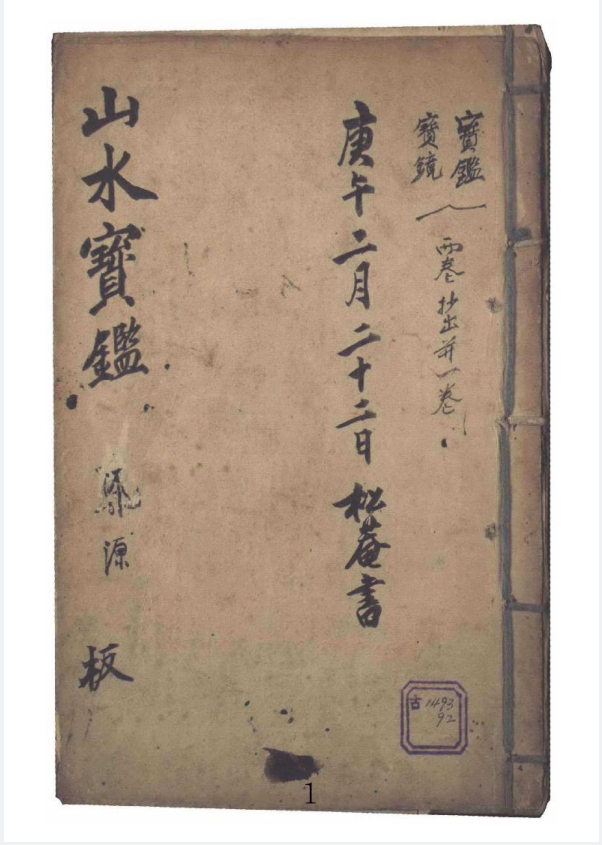 寶鑑
寶鏡
両卷抄出并一卷
庚午二月二十二日 松菴書
山水寶鑑
源
板
古 1493
92
1